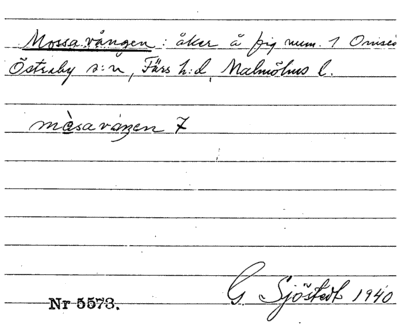 Mossavången : åker å fig num. 1 Onsio
Östraby s:n, Färs h:d, Malmöhus l.
màsavàŋen 7
G Sjöstedt 1940
Nr 5573.